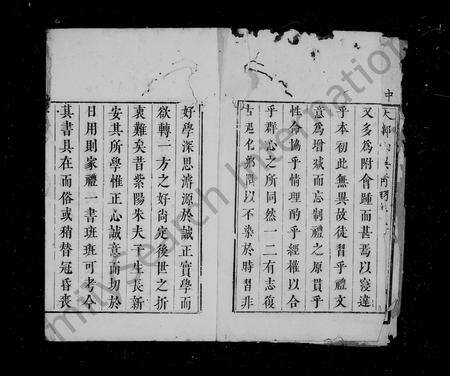 中
又多為附會踵而甚焉以寖違
乎本初無異故徒習乎禮文
意為增減而忘制禮之原貫乎
性命協乎情理酌乎經權以合
乎群心之所同然一二有志復
古思化弟以不染於時習非
好學深思濬源於誠正實學而
欲轉一方之好尚定後世之折
衷難矣昔紫陽朱夫子生長新
安其所學惟正心誠意而切於
日用則家禮一書班班可考今
其書具在而俗或稍替冠昏喪